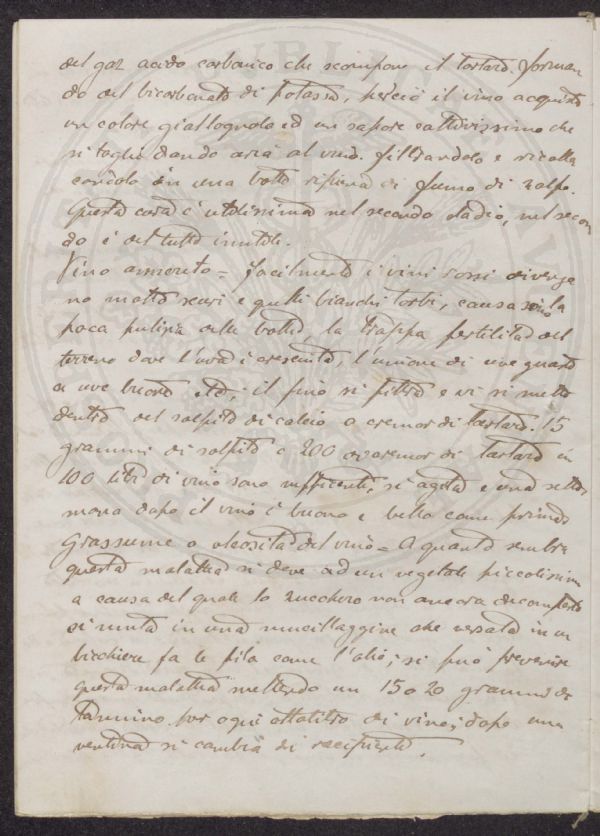 del gaz acido carbonico che scompone il tartaro forman
do del bicarbonato di potassa, perciò il vino acquista
un colore giallognolo ed un sapore cattivissimo che
si toglie dando aria al vino filtrandolo e ricollo
candolo in una botte ripiena di fumo di zolfo.
Questa cosa è utilissima nel secondo stadio, nel secon
do è del tutto inutile.
Vino annerito = Facilmente i vini rossi divenge
no molto scuri e quelli bianchi torbi, causa sono la
poca pulizia delle botti, la troppa fertilità del
terreno dove l'uva è cresciuta, l'unione di uve guaste
a uve buone etc; il vino si filtra e vi si mette
dentro del solfito di calcio o cremor di tartaro. 15
grammi di solfito o 200 di cremor di tartaro in
100 litri di vino sono sufficienti, si agita e una setti
mana dopo il vino è buono e bello come prima
Grassume o oleosità del vino = A quanto sembra
questa malattia si deve ad un vegetale piccolissimo
a causa del quale lo zucchero non ancora decomposto
si muta in una mucillaggine che versata in un
bicchiere fa le fila come l'olio; si può prevenire
questa malattia mettendo un 15 o 20 grammi di
tannino per ogni ettolitro di vino; dopo una
ventina si cambia di recipiente.
PUBLICAE